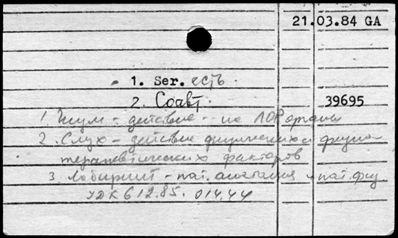 21.03.84 GA
1. Ser. есть
2. Соавт.
39695
1. Шум - действие - на ЛОР органы
2. Слух - действие физических и физио-
терапевтических факторов
3. Лабиринт - пат. анатомия и пат. физ
УДК 612.85. 014.44